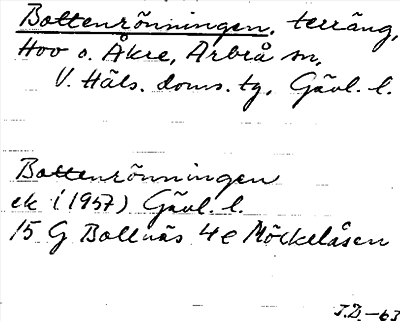 Bottenrönningen, terräng,
Hov o. Åkre, Arbrå sn,
V. Häls. doms. tg, Gävl. l.
Bottenrönningen
ek (1957) Gävl. l.
15 G Bollnäs 4e Möckelåsen
J.D. -63